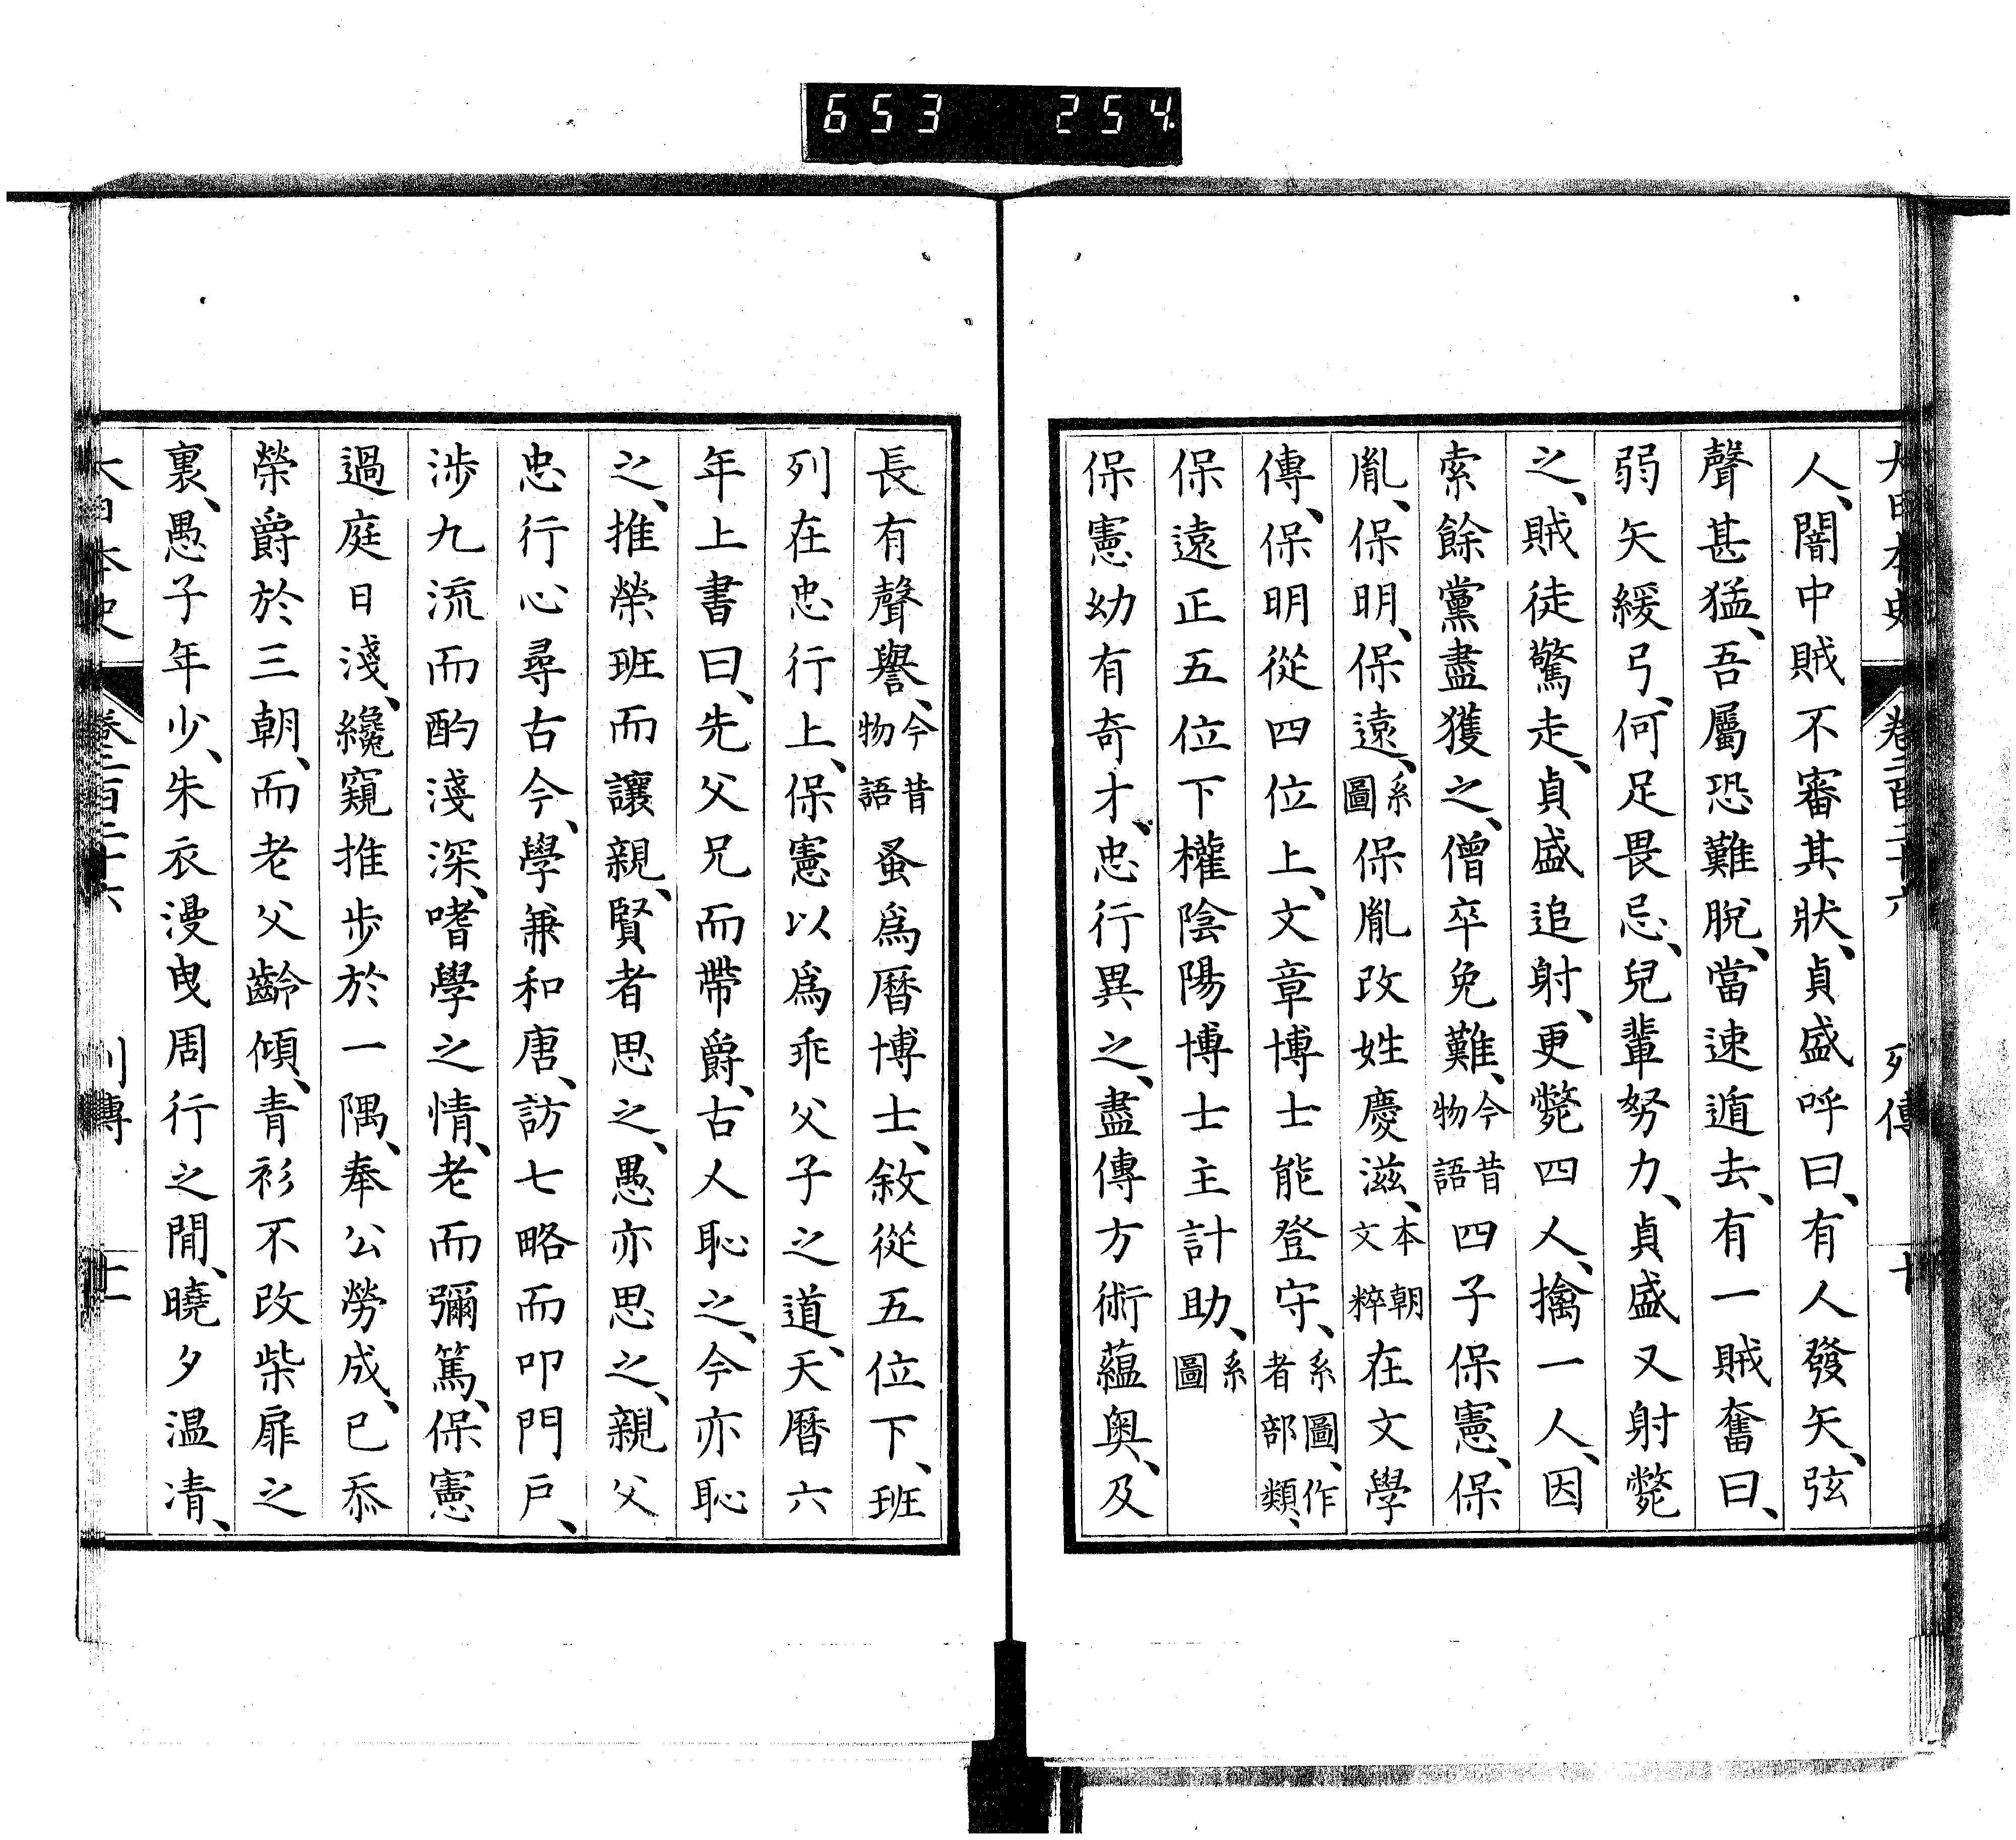 653 254
大日本史 卷二百二十六 列傳 十
人、闇中賊不審其狀、貞盛呼曰、有人發矢、弦
聲甚猛、吾屬恐難脫、當速遁去、有一賊奮曰、
弱矢緩弓、何足畏忌、兒輩努力、貞盛又射斃
之、賊徒驚走、貞盛追射、更斃四人、擒一人、因
索餘黨盡獲之、僧卒免難、今昔物語四子保憲、保
胤、保明、保遠、系圖保胤改姓慶滋、本朝文粹在文學
傳、保明從四位上、文章博士能登守、系圖、作者部類、
保遠正五位下權陰陽博士主計助、系圖
保憲幼有奇才、忠行異之、盡傳方術蘊奥、及
長有聲譽、今昔物語蚤爲曆博士、敘從五位下、班
列在忠行上、保憲以爲乖父子之道、天曆六
年上書曰、先父兄而帶爵、古人恥之、今亦恥
之、推榮班而讓親、賢者思之、愚亦思之、親父
忠行心尋古今、學兼和唐、訪七略而叩門戶、
涉九流而酌淺深、嗜學之情、老而彌篤、保憲
過庭日淺、纔窺推步於一隅、奉公勞成、已忝
榮爵於三朝、而老父齡傾、青衫不改柴扉之
裏、愚子年少、朱衣漫曳周行之間、曉夕温凊、
大日本史 卷二百二十六 列傳 十一